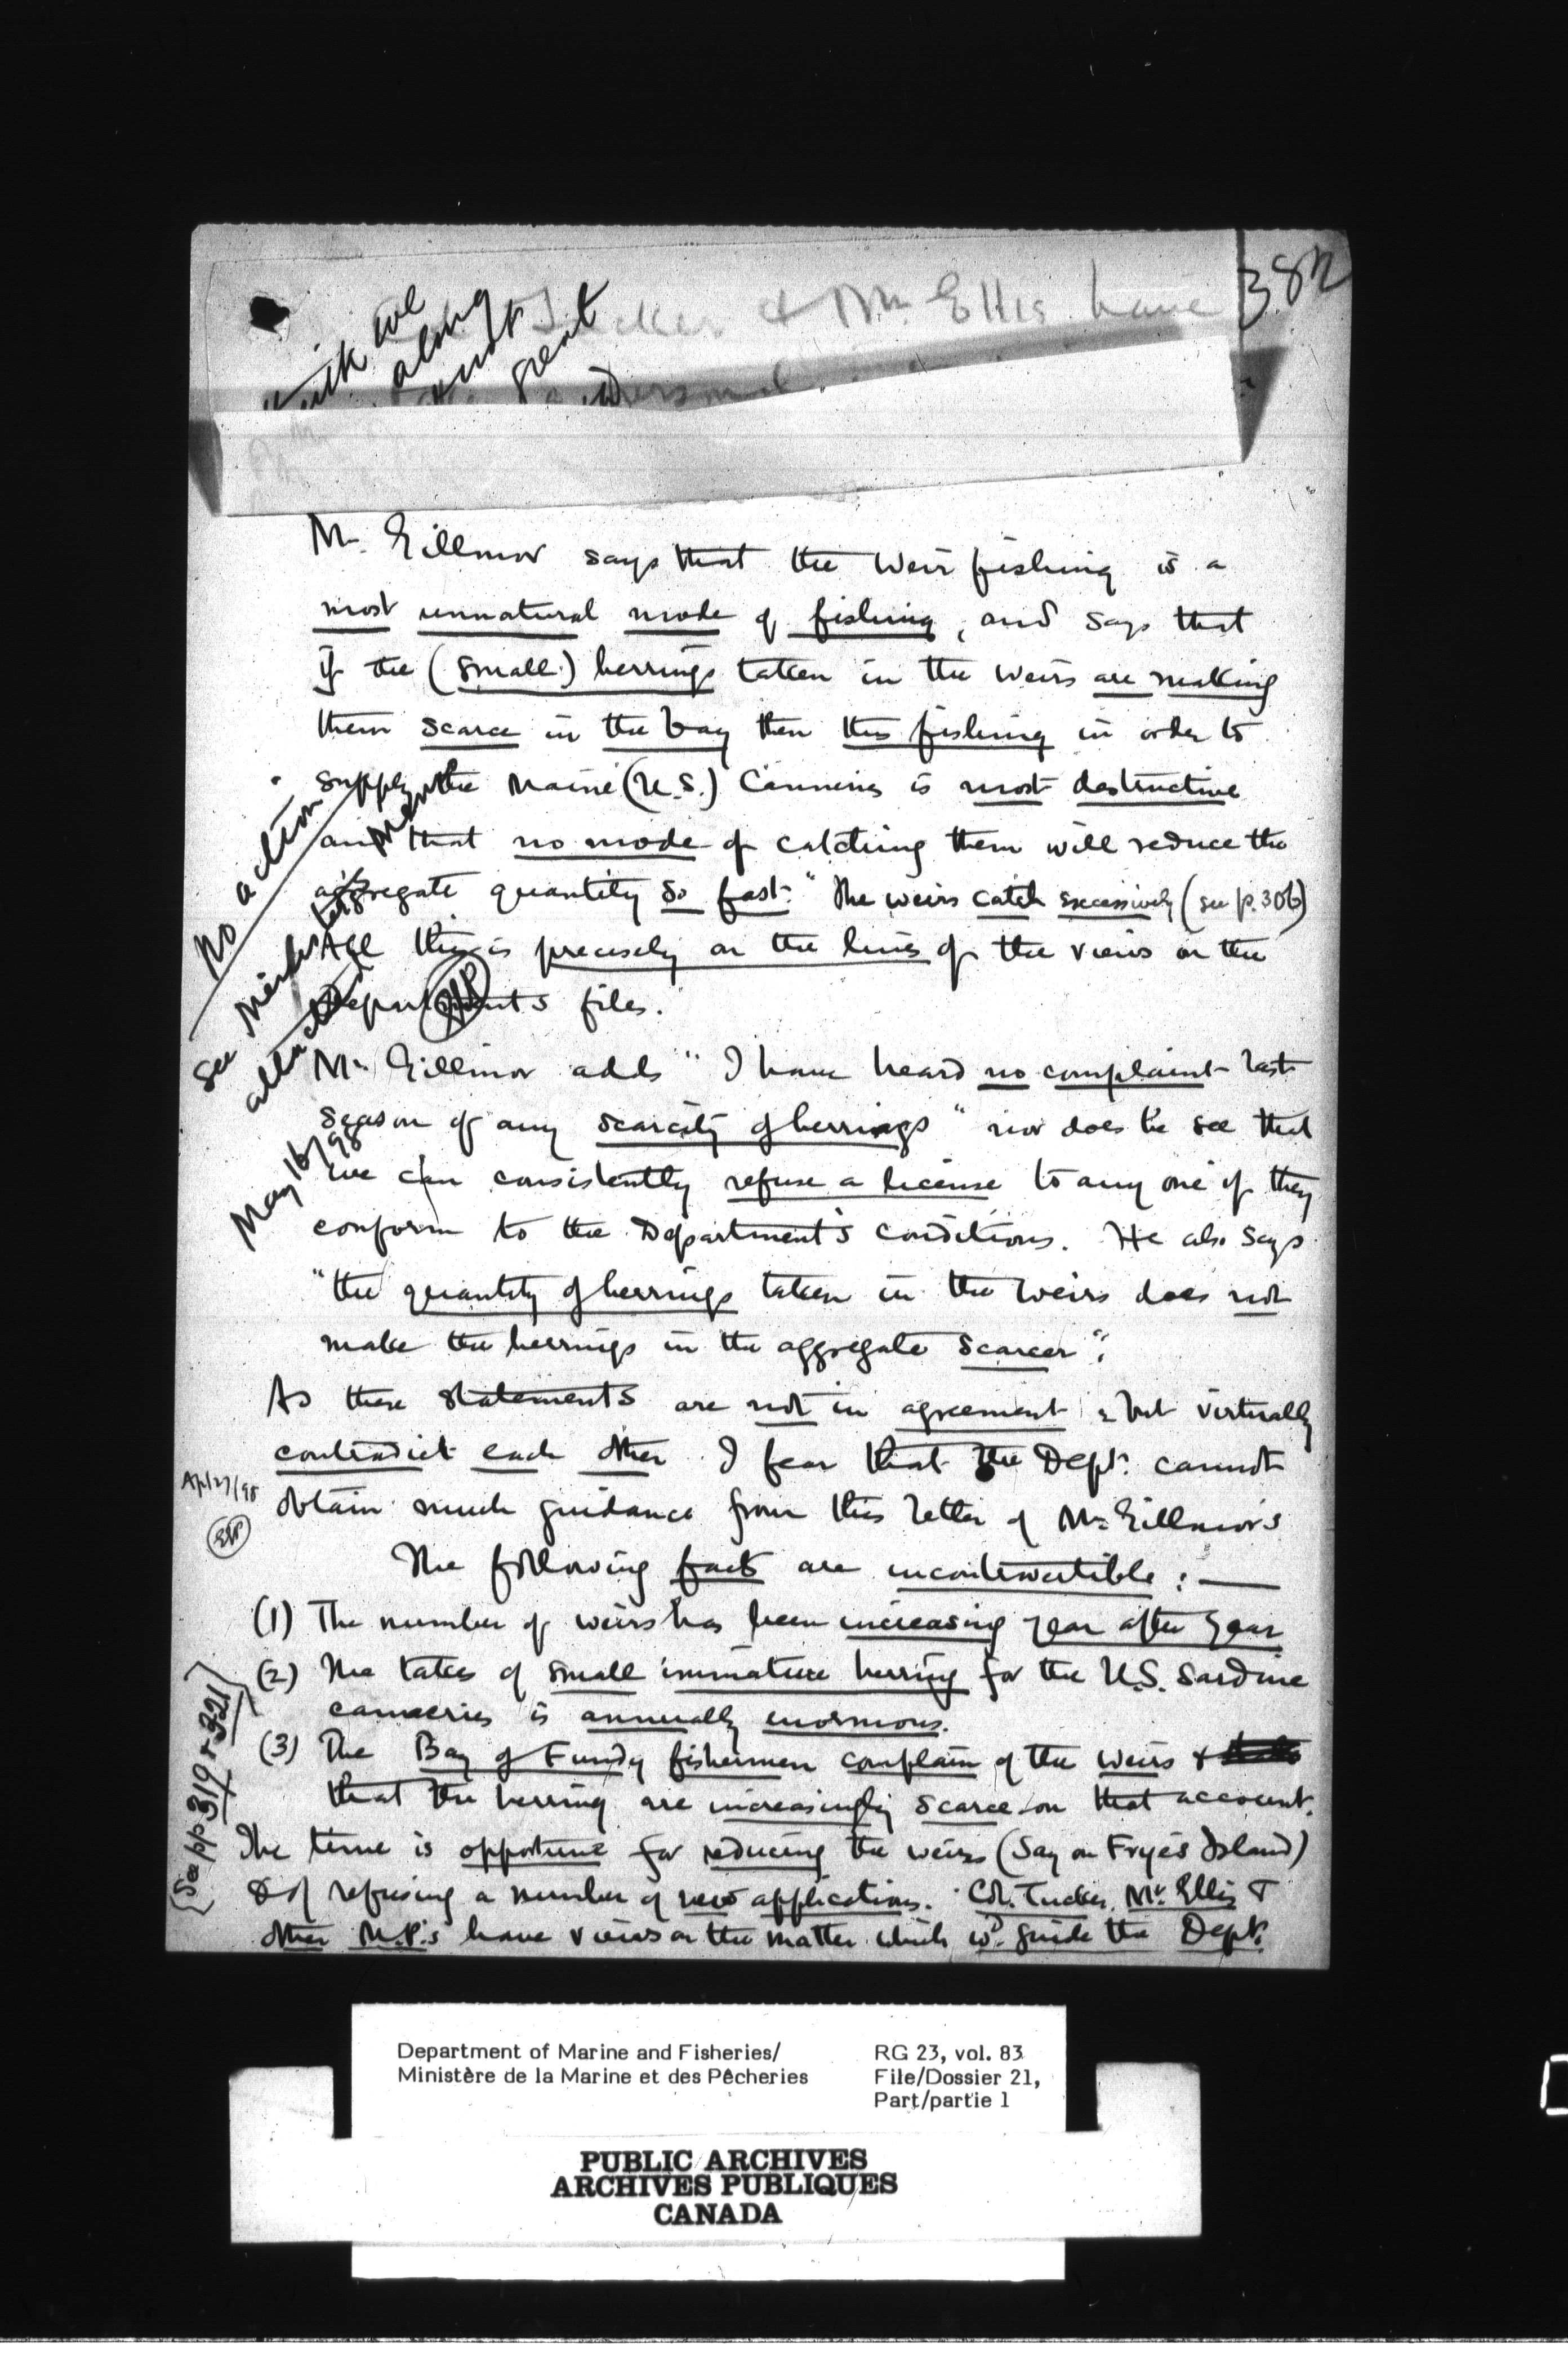 382
Tucker & Mr. Ellis have
we
along
great
Mr. Gillmor says that the Weir fishing is a
most unnatural mode of fishing, and says that
if the (small) herrings taken in the weirs are making
them scarce in the bay then this fishing in order to
supply the Maine (U.S.) Canneries is most destructive
and that no mode of catching them will reduce the
aggregate quantity so fast." The weirs catch excessively (see p. 306)
All this is precisely on the lines of the views on the
Department's files.
No action
See Mem
attached
May 16/98
Mr. Gillmor adds "I have heard no complaint last
season of any scarcity of herrings" nor does he see that
we can consistently refuse a license to any one if they
conform to the Department's conditions. He also says
"the quantity of herrings taken in the weirs does not
make the herrings in the aggregate scarcer".
As these statements are not in agreement, but virtually
contradict each other I fear that the Dept. cannot
obtain much guidance from this letter of Mr. Gillmor's
Apl 27/98
EEP
The following facts are incontrovertible: —
(1) The number of weirs has been increasing year after year
(2) The take of small immature herring for the U.S. Sardine
canneries is annually enormous.
(3) The Bay of Fundy fishermen complain of the weirs &
that the herring are increasingly scarce on that account.
{See pp 319 & 321}
The time is opportune for reducing the weirs (Say on Frye's Island)
& of refusing a number of new applications. Col. Tucker, Mr. Ellis &
other M.P.'s have views on the matter which wd. guide the Dept.
Department of Marine and Fisheries/
Ministère de la Marine et des Pêcheries
RG 23, vol. 83
File/Dossier 21,
Part/partie 1
PUBLIC ARCHIVES
ARCHIVES PUBLIQUES
CANADA